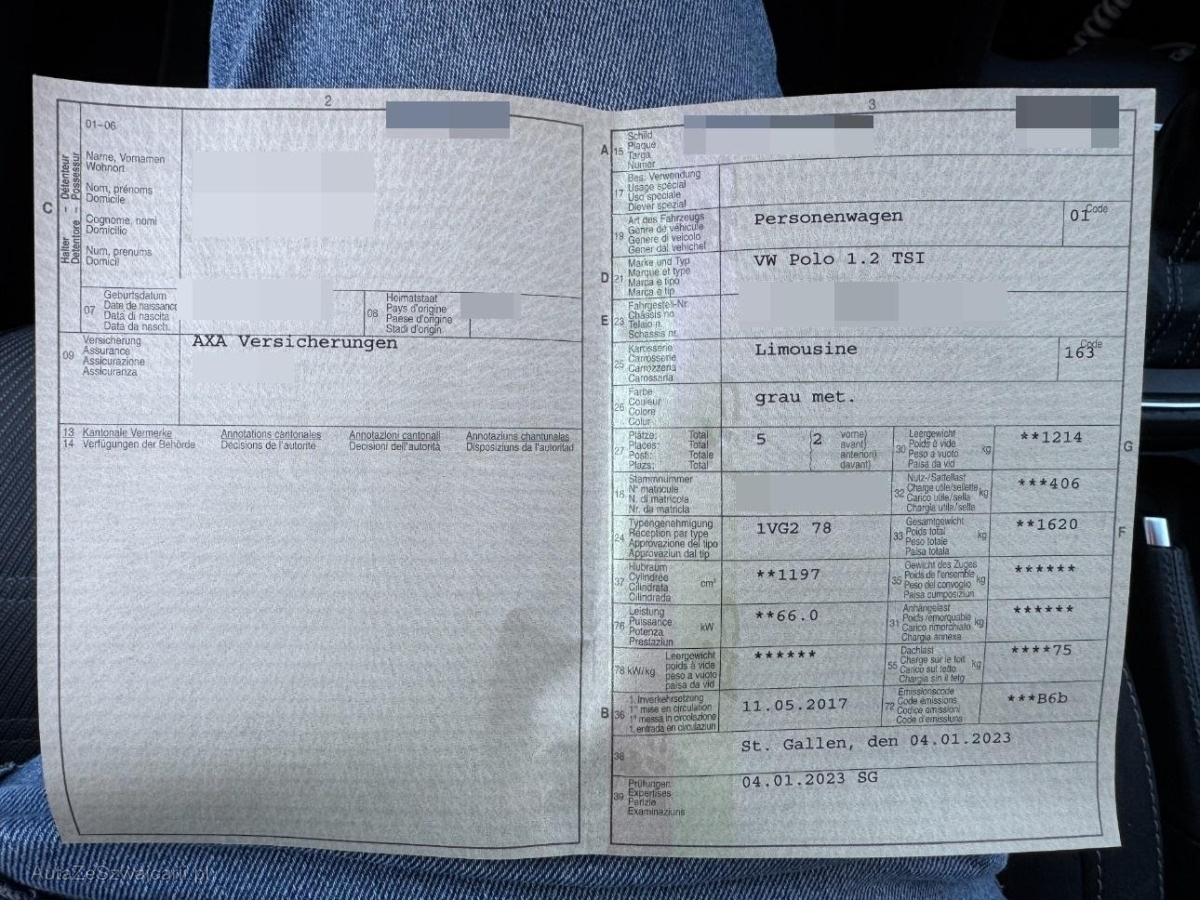 2
01-06
Halter – Détenteur
Detentore – Possessur
C
Name, Vornamen
Wohnort
Nom, prénoms
Domicile
Cognome, nomi
Domicilio
Num, prenums
Domicil
07
Geburtsdatum
Date de naissance
Data di nascita
Data da nasch.
08
Heimatstaat
Pays d'origine
Paese d'origine
Stadi d'origin.
09
Versicherung
Assurance
Assicurazione
Assicuranza
AXA Versicherungen
13 Kantonale Vermerke Annotations cantonales Annotazioni cantonali Annotaziuns chantunalas
14 Verfügungen der Behörde Décisions de l'autorité Decisioni dell'autorità Disposiziuns da l'autoritad
3
A 15
Schild
Plaque
Targa
Numer
17
Bes. Verwendung
Usage spécial
Uso speciale
Diever spezial
19
Art des Fahrzeugs
Genre de véhicule
Genere di veicolo
Gener dal vehichel
Personenwagen
01 Code
D 21
Marke und Typ
Marque et type
Marca e tipo
Marca e tip
VW Polo 1.2 TSI
E 23
Fahrgestell-Nr.
Châssis no
Telaio n.
Schassis nr.
25
Karosserie
Carrosserie
Carrozzeria
Carossaria
Limousine
163 Code
26
Farbe
Couleur
Colore
Colur
grau met.
27
Plätze: Total
Places: Total
Posti: Totale
Plazs: Total
5
2
vorne)
avant)
anteriori)
davant)
30
Leergewicht
Poids à vide
Peso a vuoto
Paisa da vid
kg
**1214
G
18
Stammnummer
N° matricule
N. di matricola
Nr. da matricla
32
Nutz-/Sattellast
Charge utile/sellette
Carico utile/sella
Chargia utile/sella
kg
***406
24
Typengenehmigung
Réception par type
Approvazione del tipo
Approvaziun dal tip
1VG2 78
33
Gesamtgewicht
Poids total
Peso totale
Paisa totala
kg
**1620
F
37
Hubraum
Cylindrée
Cilindrata
Cilindrada
cm³
**1197
35
Gewicht des Zuges
Poids de l'ensemble
Peso del convoglio
Paisa cumposiziun
kg
******
76
Leistung
Puissance
Potenza
Prestaziun
kW
**66.0
31
Anhängelast
Poids remorquable
Carico rimorchiato
Chargia annexa
kg
******
78 kW/kg
Leergewicht
poids à vide
peso a vuoto
paisa da vid
******
55
Dachlast
Charge sur le toit
Carico sul tetto
Chargia sin il tetg
kg
****75
B 36
1. Inverkehrsetzung
1re mise en circulation
1a messa in circolazione
1. entrada en circulaziun
11.05.2017
72
Emissionscode
Code émissions
Codice emissioni
Code d'emissiuns
***B6b
38
St. Gallen, den 04.01.2023
39
Prüfungen
Expertises
Perizie
Examinaziuns
04.01.2023 SG
AutaZeSzwajcarii.pl